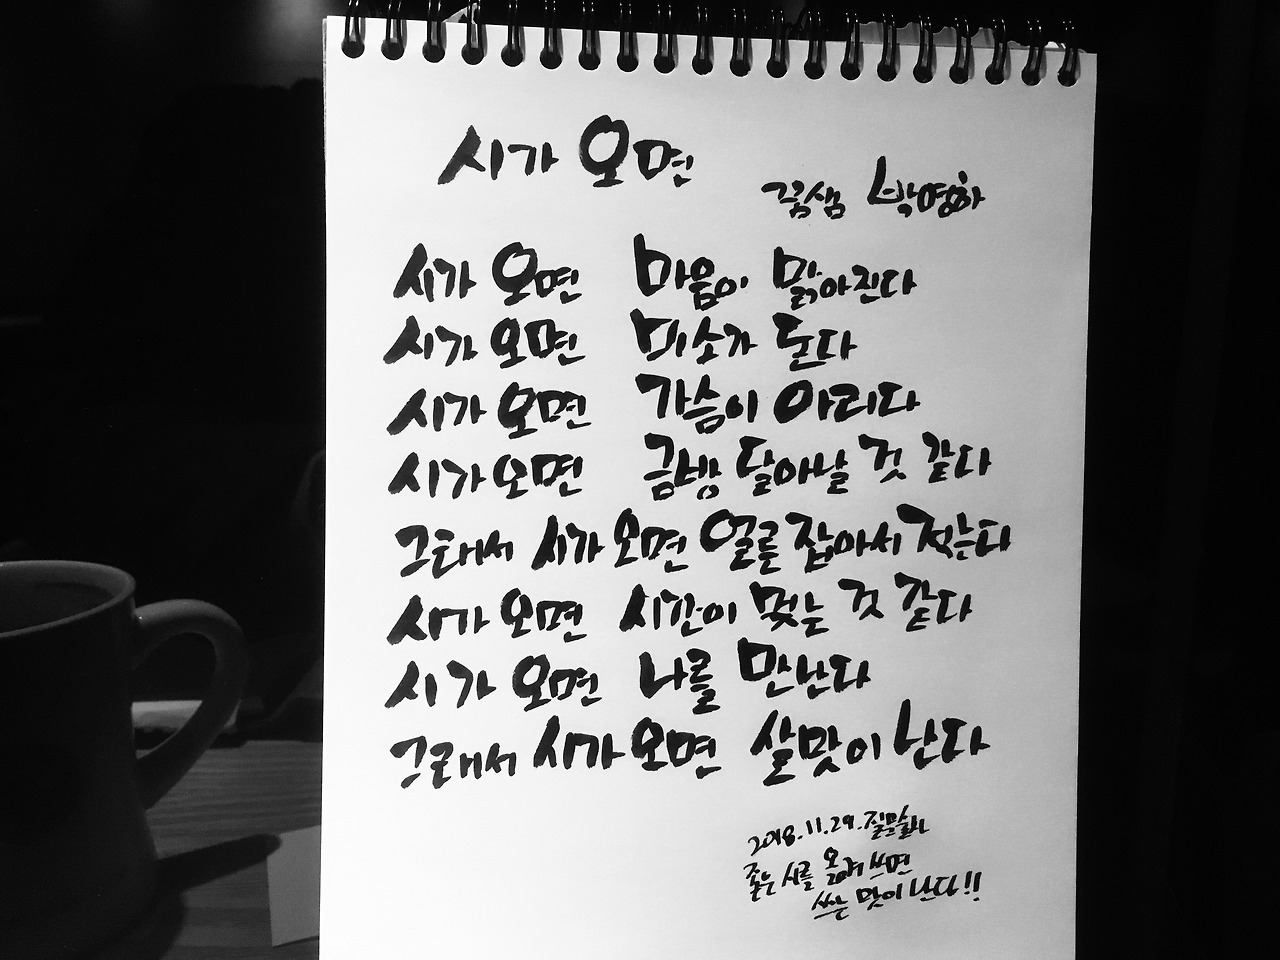 시가 오면
꿈샘 박영하
시가 오면 마음이 맑아진다
시가 오면 미소가 돈다
시가 오면 가슴이 아리다
시가 오면 금방 달아날 것 같다
그래서 시가 오면 얼른 잡아서 적는다
시가 오면 시간이 멎는 것 같다
시가 오면 나를 만난다
그래서 시가 오면 살맛이 난다
2018.11.29.
좋은 시를 옮겨 쓰면
쓰는 맛이 난다!!